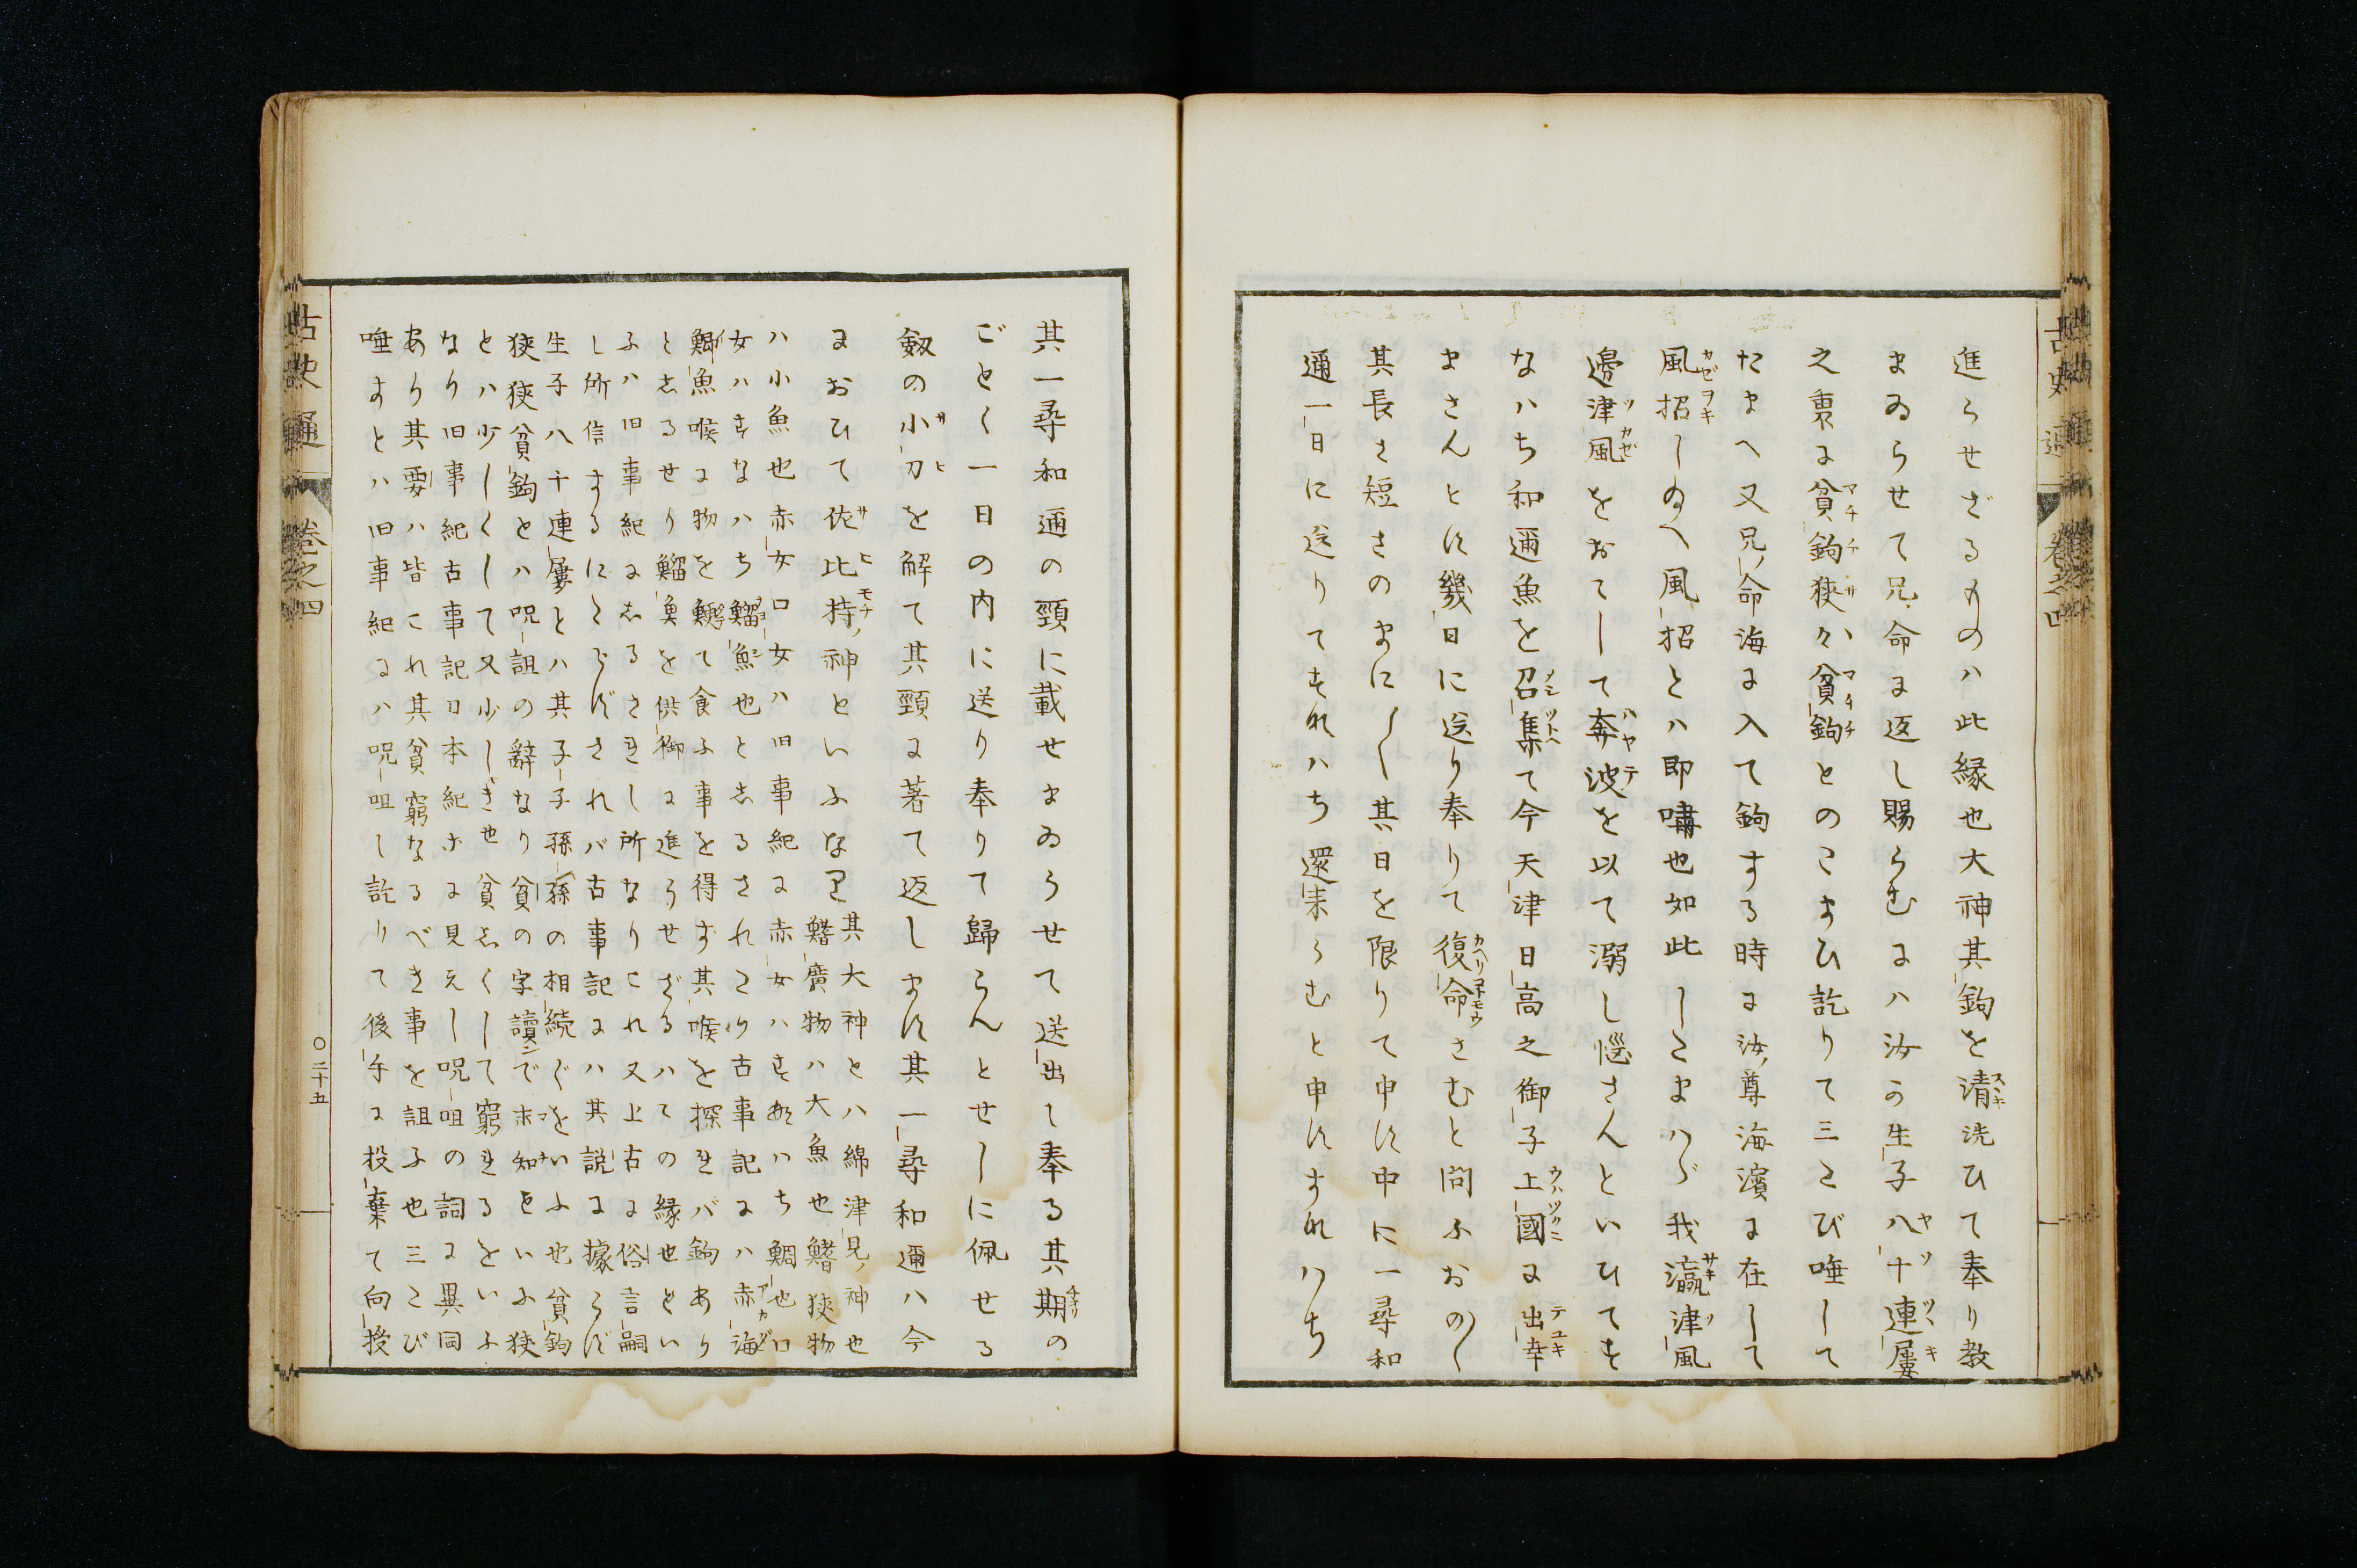 進らせざるものハ此縁也大神其鉤を清洗ひて奉り教
まゐらせて兄命に返し賜らむにハ汝の生子八十連屢
之裏に貧鉤狹々貧鉤とのこまひ訖りて三たび唾して
たまへ又兄命海に入て鉤する時に汝尊海濱に在して
風招しゐへ風招とハ即嘯也如此したまハゞ我瀛津風
邊津風をおこして奔波を以て溺し惱さんといひてす
なハち和邇魚を召集て今天津日高之御子上國に出幸
まさんとす幾日に送り奉りて復命さむと問ふおの〱
其長さ短さのまに〱其日を限りて申す中に一尋和
邇一日に送りてすなハち還来らむと申すすなハち
其一尋和邇の頸に載せまゐらせて送出し奉る其期の
ごとく一日の内に送り奉りて歸らんとせしに佩せる
劔の小刀を解て其頸に著て返します其一尋和邇ハ今
におひて佐比持ノ神といふなり
其大神とハ綿津見ノ神也
鰭廣物ハ大魚也鰭狹物
ハ小魚也赤女口女ハ旧事紀に赤女ハすなハち鯛也口
女ハすなハち鯔魚也としるされたり古事記にハ赤海
鯽魚喉に物を鯁て食ふ事を得ず其喉を探れバ鉤あり
としるせり鯔魚を供御に進らせざるハての縁也とい
ふハ旧事紀にしるされし所なりこれ又上古に俗言嗣
し所信するにたらずされバ古事記にハ其説に據らず
生子八十連屢とハ其子子孫孫の相続ぐをいふ也貧鉤
狹狹貧鉤とハ呪詛の辭なり貧の字讀でマチといふ狹
とハ少しくして又少しき也貧しくして窮れるをいふ
なり旧事紀古事記日本紀ホに見えし呪咀の詞に異同
あり其要ハ皆これ其貧窮なるべき事を詛ふ也三たび
唾すとハ旧事紀にハ呪咀し訖りて後手に投棄て向授
古史通
卷之四
〇二十五